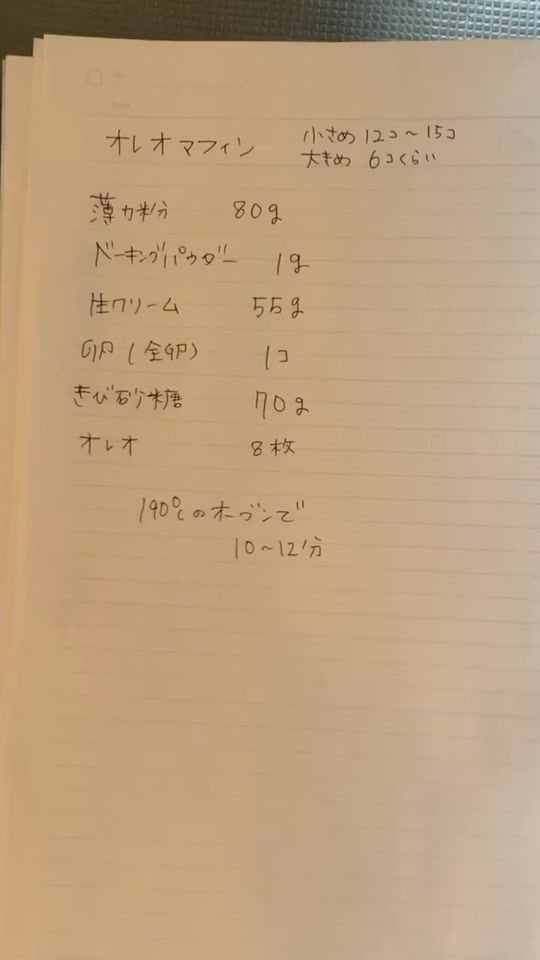 オレオマフィン 小さめ 12コ〜15コ
大きめ 6コくらい
薄力粉 80g
ベーキングパウダー 1g
生クリーム 55g
卵(全卵) 1コ
きび砂糖 70g
オレオ 8枚
190℃のオーブンで
10〜12分